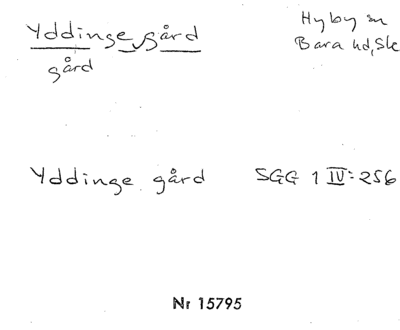 Yddinge gård
gård
Hyby sn
Bara hd, Sk
Yddinge gård SGG 1 IV:256
Nr 15795